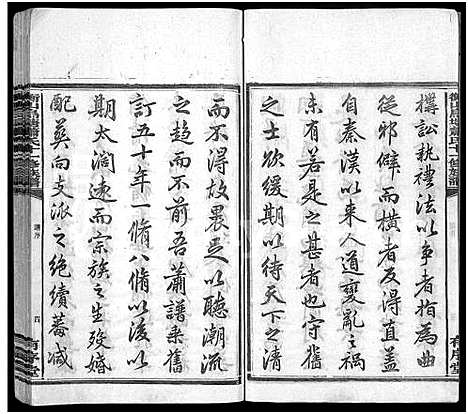 撙訟執禮法以爭者指為曲
從邪僻而橫者反得直矣
自秦漢以來人道變亂之禍
未有若是之甚者也守舊
之士欲緩期以待天下之清
而不得故畏足以聽潮流
之趨而不前吾蕭譜案舊
訂五十年一脩八脩以後以
期太濶速而宗族之生歿婚
配葬向支派之絕續蕃減
譜序
四
有序堂